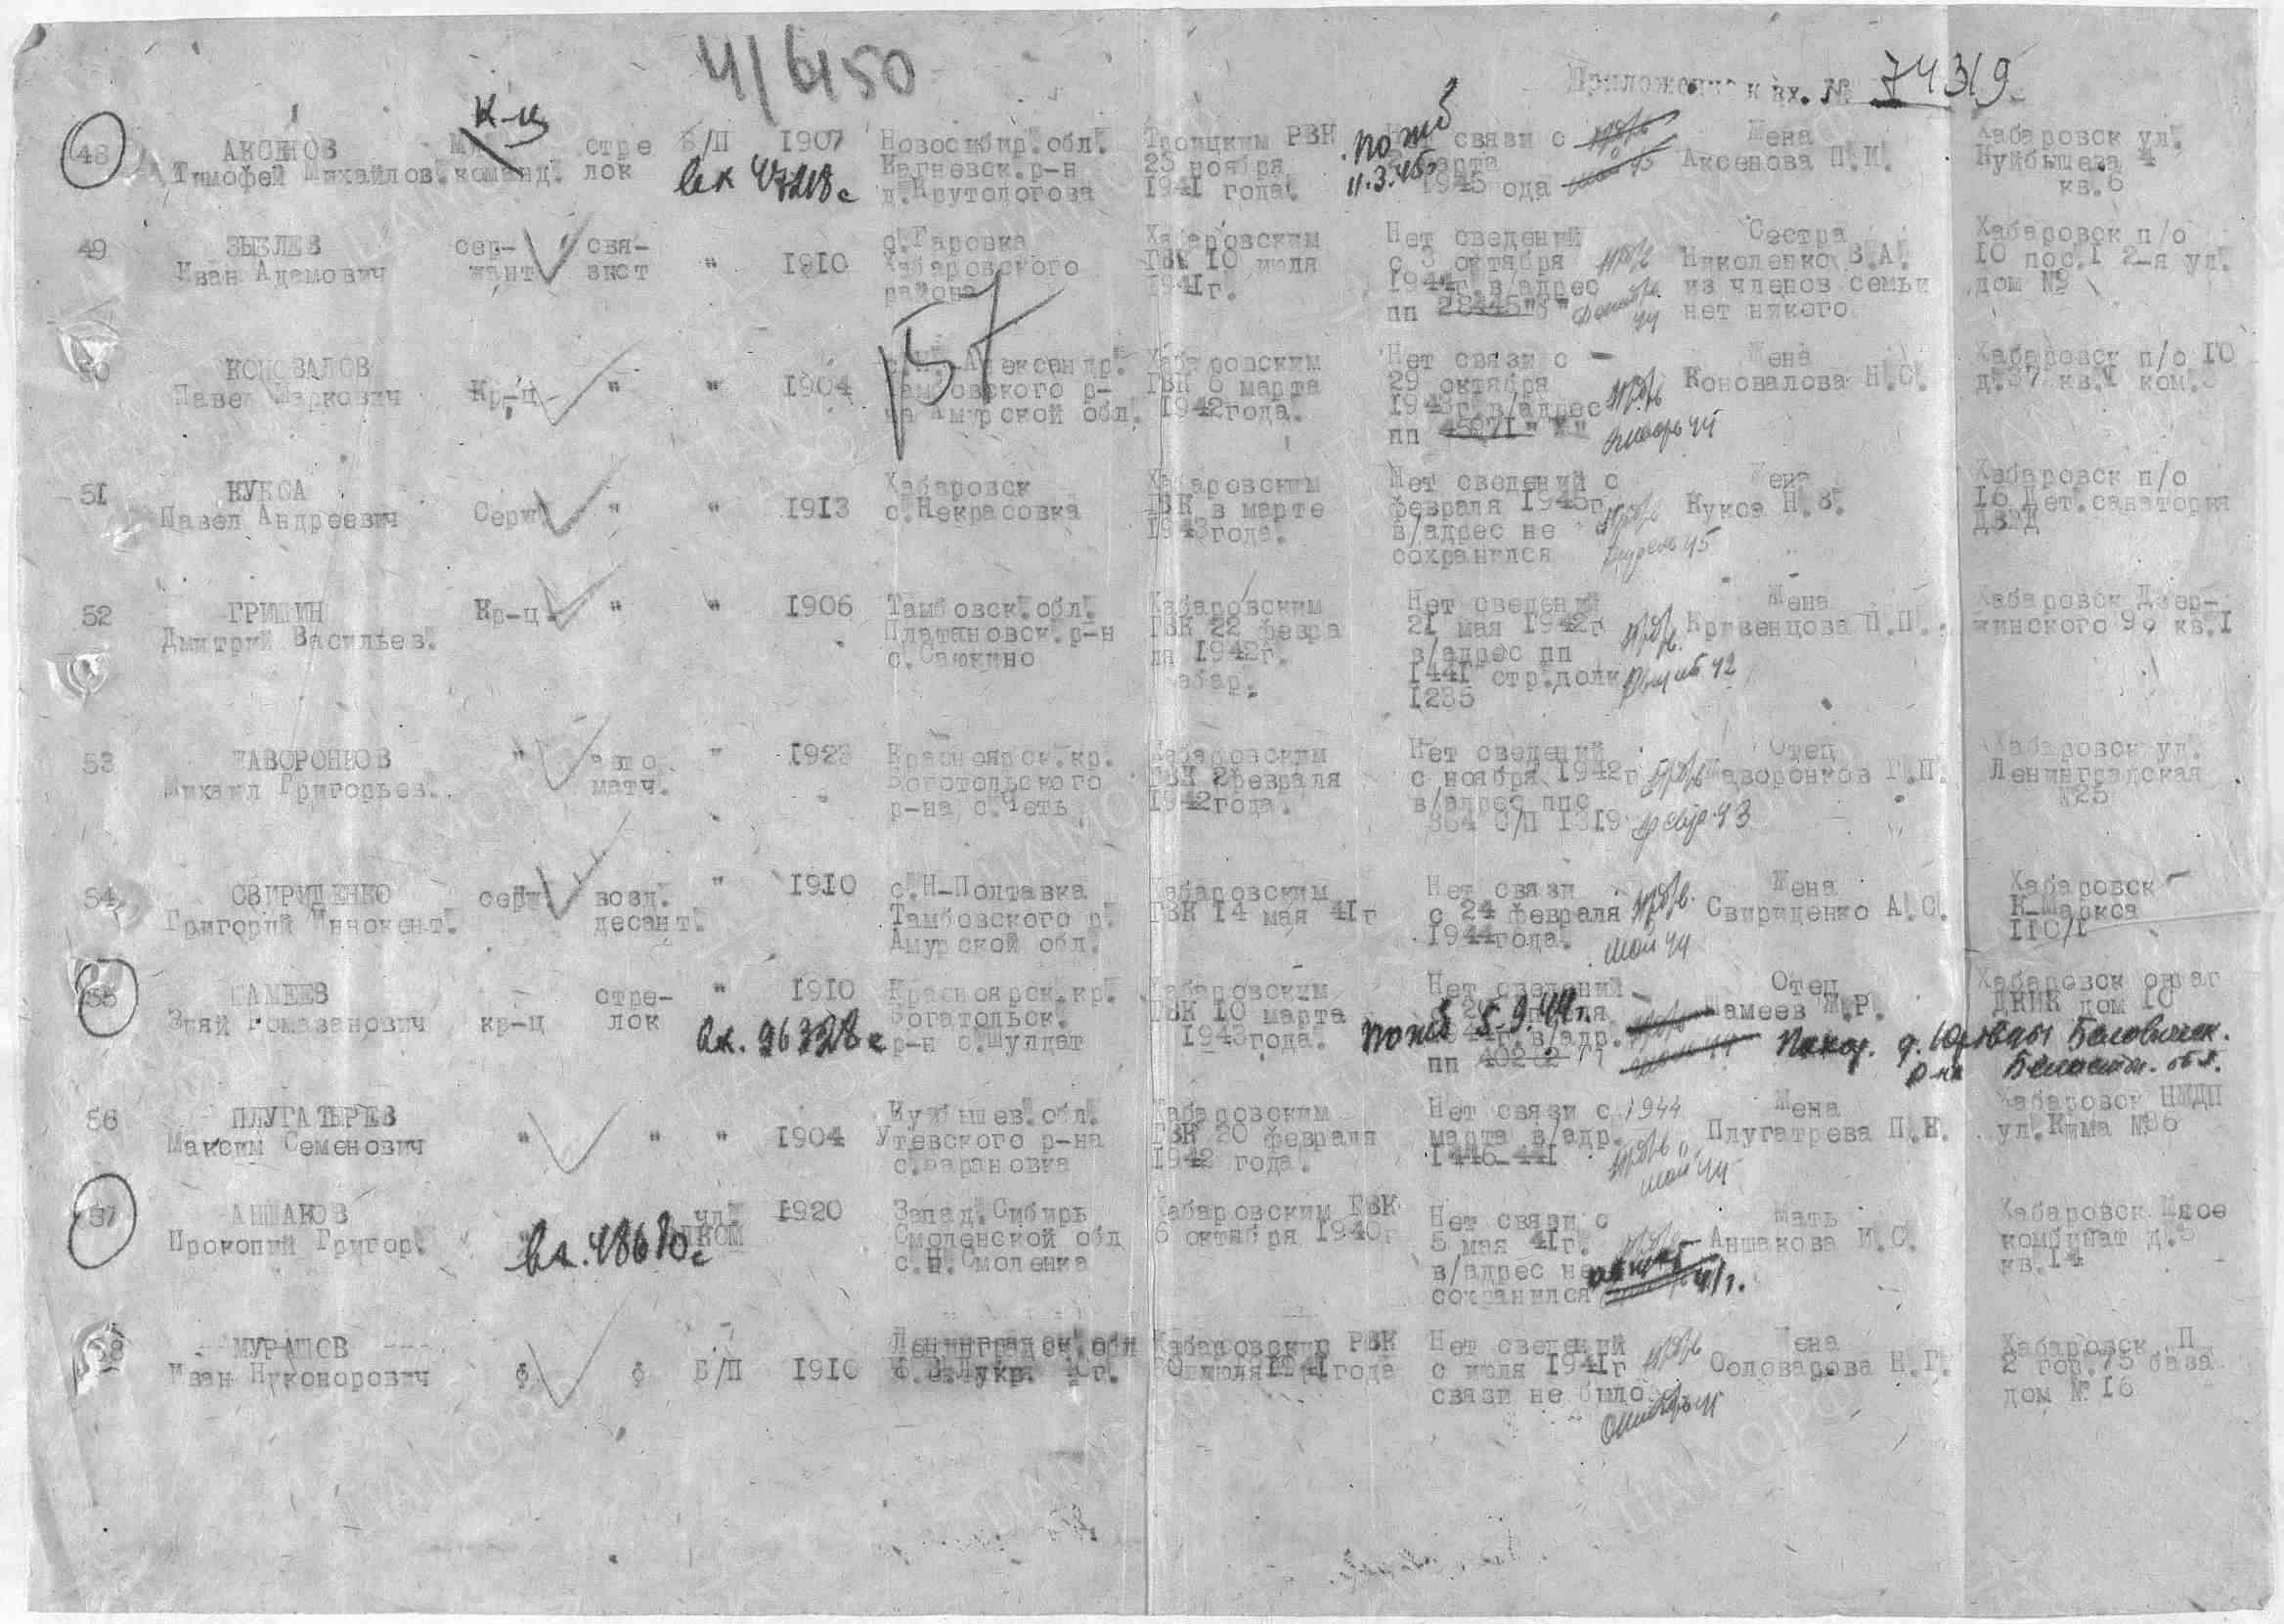 4/6150
Приложение к вх. № 74319
48 АКСЕНОВ Тимофей Михайлов. к-ц команд. стре лок Б/П 1907 Новосибир. обл. р-н д. Крутологова Троицким РВК 25 ноября 1941 года. связи с марта 1945 ода Жена Аксенова П.И. Хабаровск ул. Куйбышева 4 кв.6
вк 47218с
погиб 11.3.45г
49 ЗЫБЛЕВ Иван Адамович сер-жант свя-зист " 1910 с. Гаровка Хабаровского района Хабаровским ГВК 10 июля 1941г. Нет сведений с 3 октября 1944г. в/адрес пп 28445 "Б" Сестра Николенко В.А. из членов семьи нет никого Хабаровск п/о 10 пос.1 2-я ул. дом №9
пр/б декабрь 44
50 КОНОВАЛОВ Павел Маркович Кр-ц " " 1904 Александр. Тамбовского р-на Амурской обл. Хабаровским ГВК 6 марта 1942года. Нет связи с 29 октября 1943г. в/адрес пп Жена Коновалова Н.С. Хабаровск п/о 10 д.37 кв.1 ком.
пр/б январь 44
51 КУКСА Павел Андреевич Серж. " " 1913 Хабаровск с.Некрасовка Хабаровским ГВК в марте 1943года. Нет сведений с февраля 1945г. в/адрес не сохранился Жена Кукса Н.В. Хабаровск п/о 16 Дет. санатория
пр/б апрель 45
52 ГРИШИН Дмитрий Васильев. Кр-ц " " 1906 Тамбовск. обл. Платановск. р-н с. Саюкино Хабаровским ГВК 22 февра ля 1942г. Хабар. Нет сведений 21 мая 1942г в/адрес пп 1441 стр.полк 1235 Жена Кривенцова П.П. Хабаровск Дзер-жинского 90 кв.1
пр/б август 42
53 ЖАВОРОНКОВ Михаил Григорьев. " авто матч. " 1923 Красноярск.кр. Боготольского р-на с.Четь Хабаровским ГВК 2февраля 1942года. Нет сведений с ноября 1942г в/адрес ппс 384 с/п 1319 Отец Жаворонков Г.П. Хабаровск ул. Ленинградская №25
пр/б февр. 43
54 СВИРИДЕНКО Григорий Иннокент. серж возд. десант. " 1910 с.Н-Полтавка Тамбовского р. Амурской обл. Хабаровским ГВК 14 мая 41г Нет связи с 24 февраля 1944года. Жена Свириденко А.С. Хабаровск К-Маркса 110/1
пр/б. май 44
55 ШАМЕЕВ Зияй Ромазанович кр-ц стре-лок " 1910 Красноярск.кр. Богатольск. р-н с.Шулдат Хабаровским ГВК 10 марта 1943года. Нет сведений в/адр. пп 40282 Отец Шамеев Ж.Р. Хабаровск овраг дом 10
вк. 96328с
погиб 5.9.44г.
Похор. д. р-на обл.
56 ПЛУГАТЫРЕВ Максим Семенович " " " 1904 Куйбышев. обл. Утевского р-на с.Барановка Хабаровским ГВК 20 февраля 1942 года. Нет связи с 1944 марта в/адр. 1446-441 Жена Плугатрева П.Н. Хабаровск НКДП ул. Кима №36
пр/б май 44
57 АНШАКОВ Прокопий Григор. чл. ВЛКСМ 1920 Запад. Сибирь Смоленской обл с.Н.Смоленка Хабаровским ГВК 6 октября 1940г Нет связи с 5 мая 41г. в/адрес не сохранился Мать Аншакова И.С. Хабаровск Мясо комбинат д.5 кв.14
вк.48680с
58 МУРАШОВ Иван Никонорович Б/П 1910 Ленинградск. обл Хабаровским РВК июля 1941года Нет сведений с июля 1941г связи не было. Жена Соловарова Н.Г. Хабаровск П 2 гор. 75 база дом №16
пр/б октябрь 41